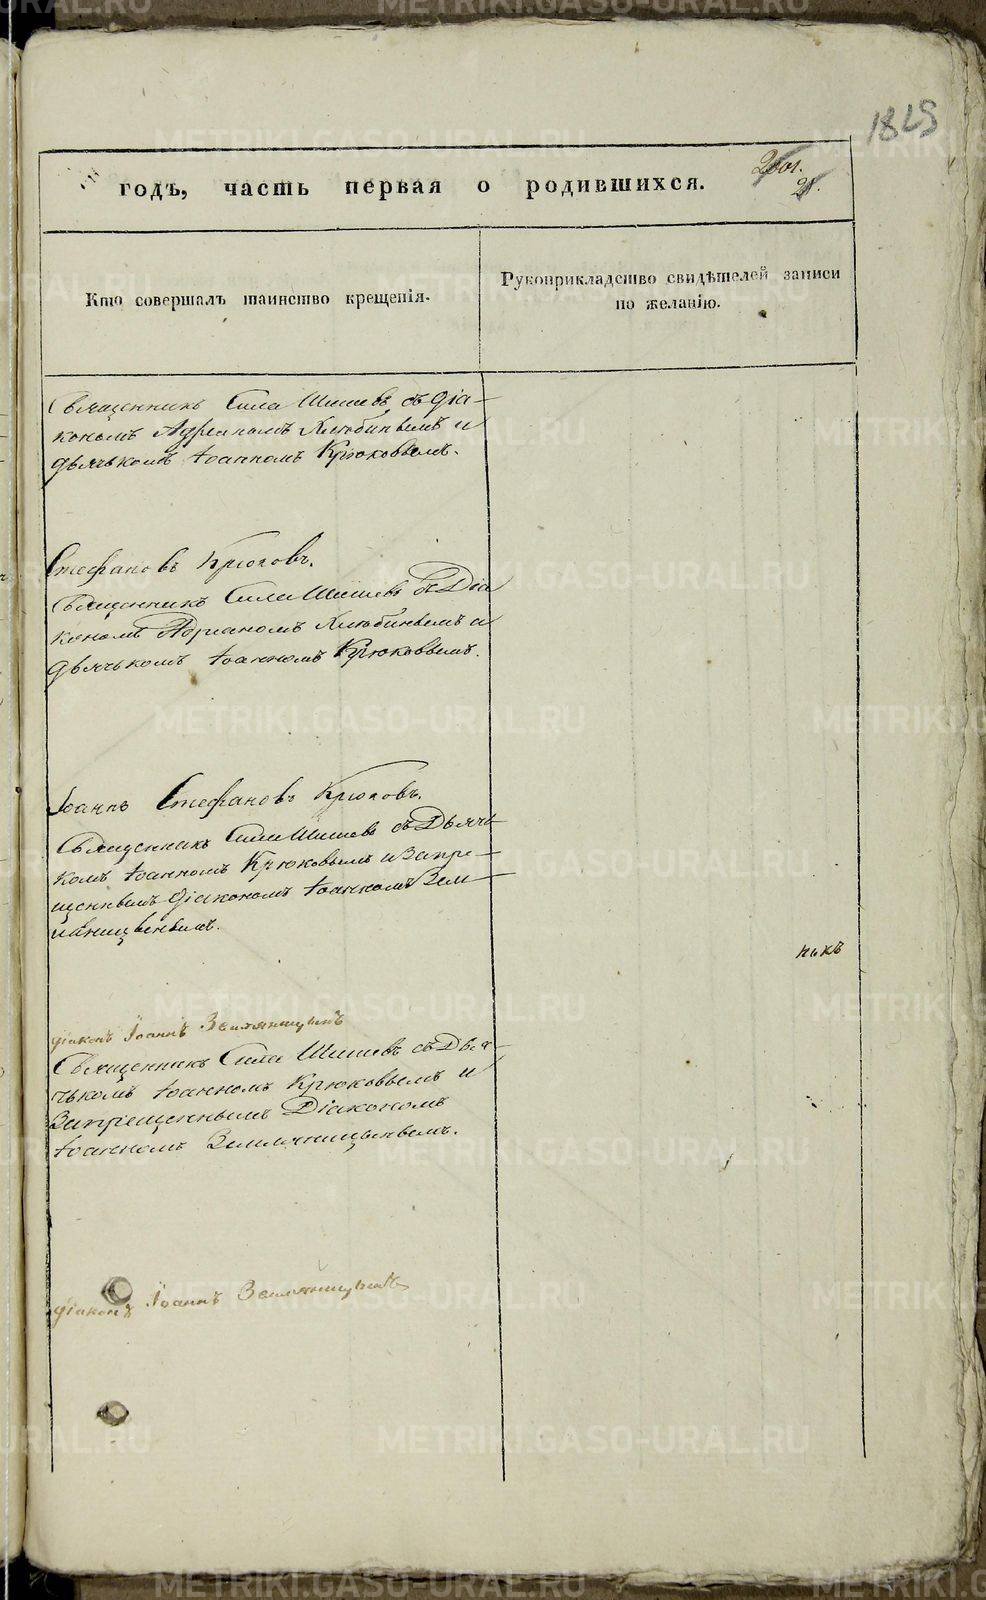 1829
годъ, часть первая о родившихся.
Кто совершалъ таинство крещенія.
Рукоприкладство свидѣтелей записи
по желанію.
Священникъ Сила Шишевъ съ Діа-
кономъ Адрианомъ Хлюбинымъ и
дьячькомъ Іоанномъ Крюковымъ.
Стефановъ Крюковъ.
Священникъ Сила Шишевъ съ Діа
кономъ Адрианомъ Хлюбинымъ и
дьячькомъ Іоанномъ Крюковымъ.
Іоаннъ Стефановъ Крюковъ.
Священникъ Сила Шишевъ съ Дьячь
комъ Іоанномъ Крюковымъ и Запре-
щеннымъ діакономъ Іоанномъ Зем
никъ
діаконъ Іоаннъ Земляницынъ
Священникъ Сила Шишевъ съ Дья-
чькомъ Іоанномъ Крюковымъ и
Запрещеннымъ Діакономъ
Іоанномъ Земляницынымъ.
діаконъ Іоаннъ Земляницынъ
METRIKI.GASO-URAL.RU